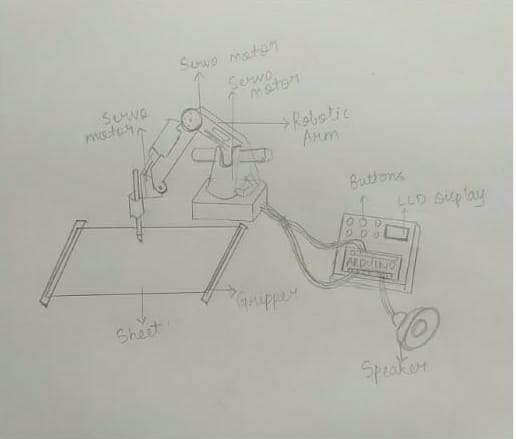 Servo motor
Servo
motor
Servo
motor
Robotic
Arm
Buttons
LCD display
ARDUINO
Gripper
Sheet
Speaker